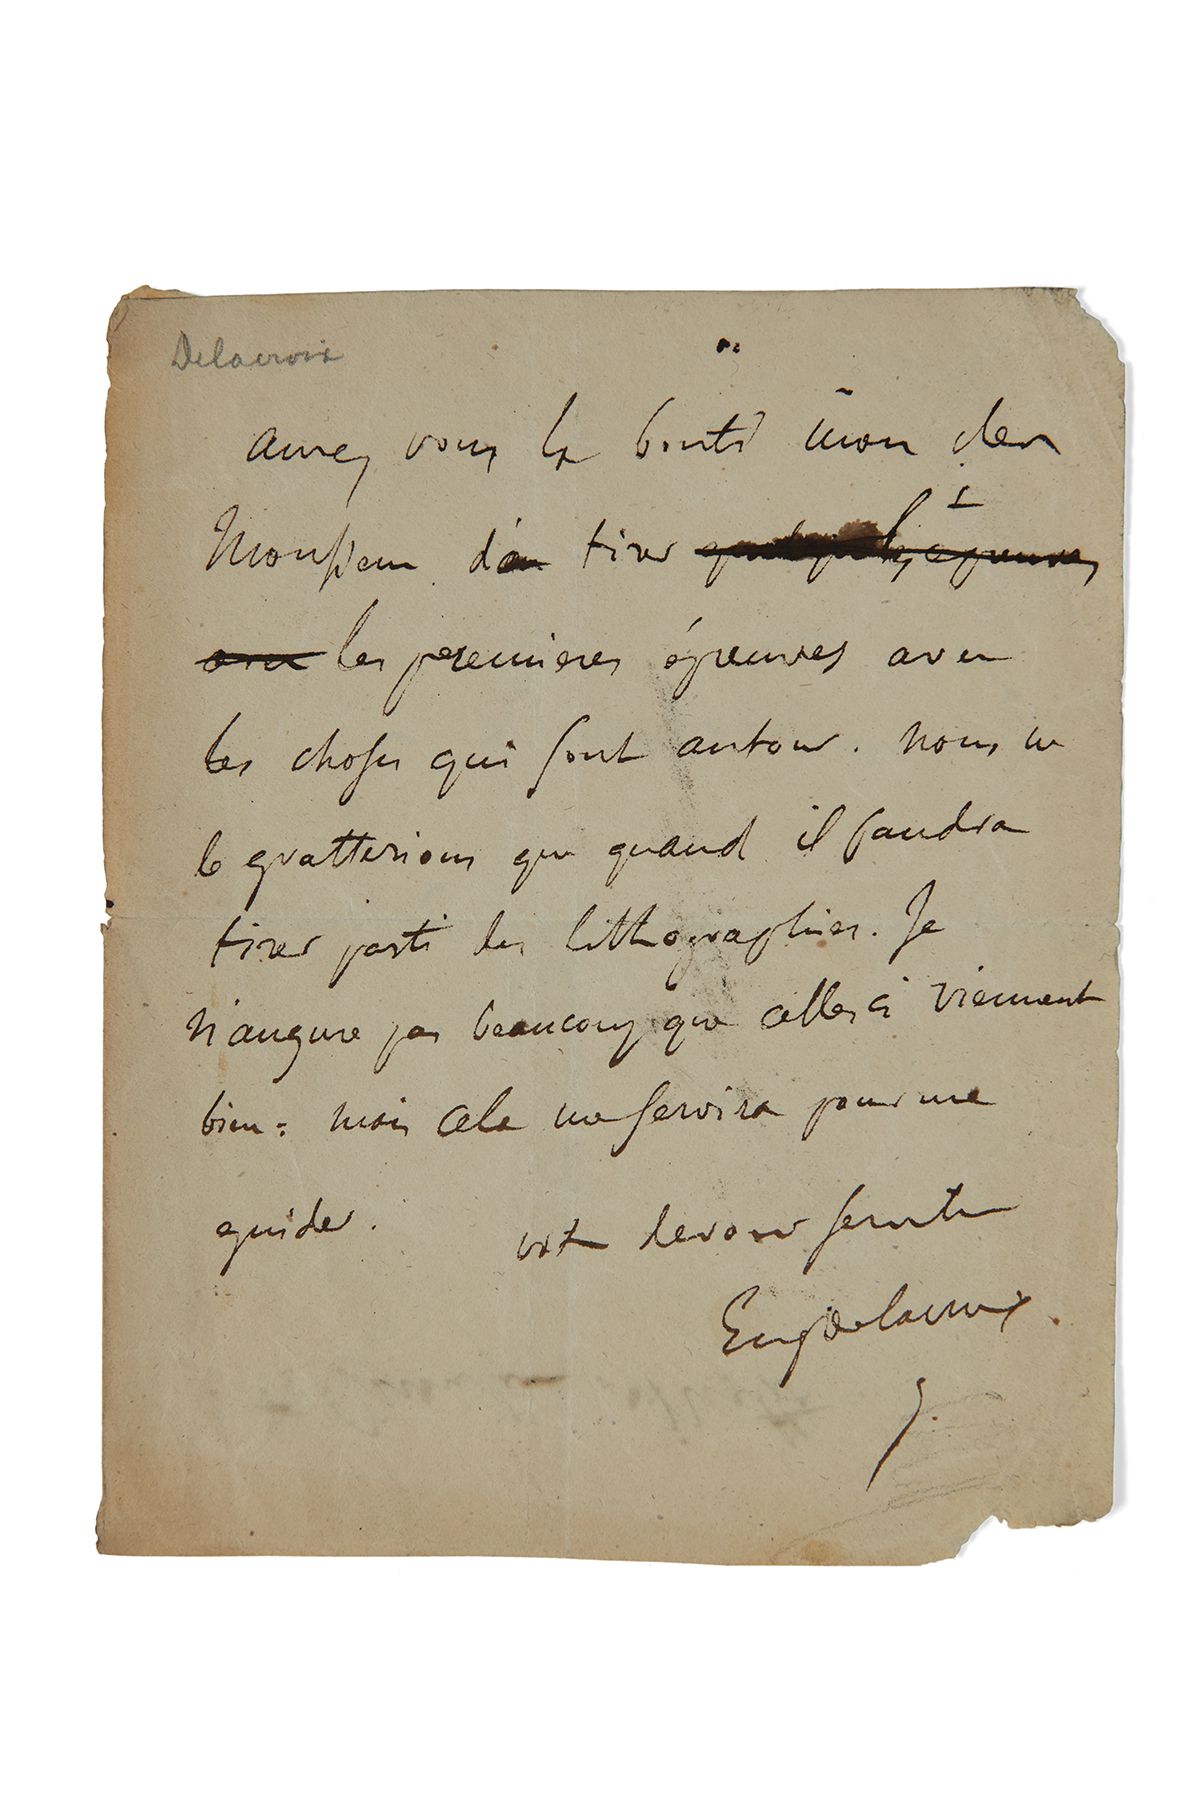 Delacroix
aurez vous la bonté mon cher
Monsieur de tirer quelques épreuves
avec les premieres épreuves avec
les choses qui sont autour. nous ne
le gratterions que quand il faudra
tirer parti des lithographies. Je
n'augure pas beaucoup que celles ci viennent
bien: mais cela me servira pour me
guider. votre devoué serviteur
EugDelacroix